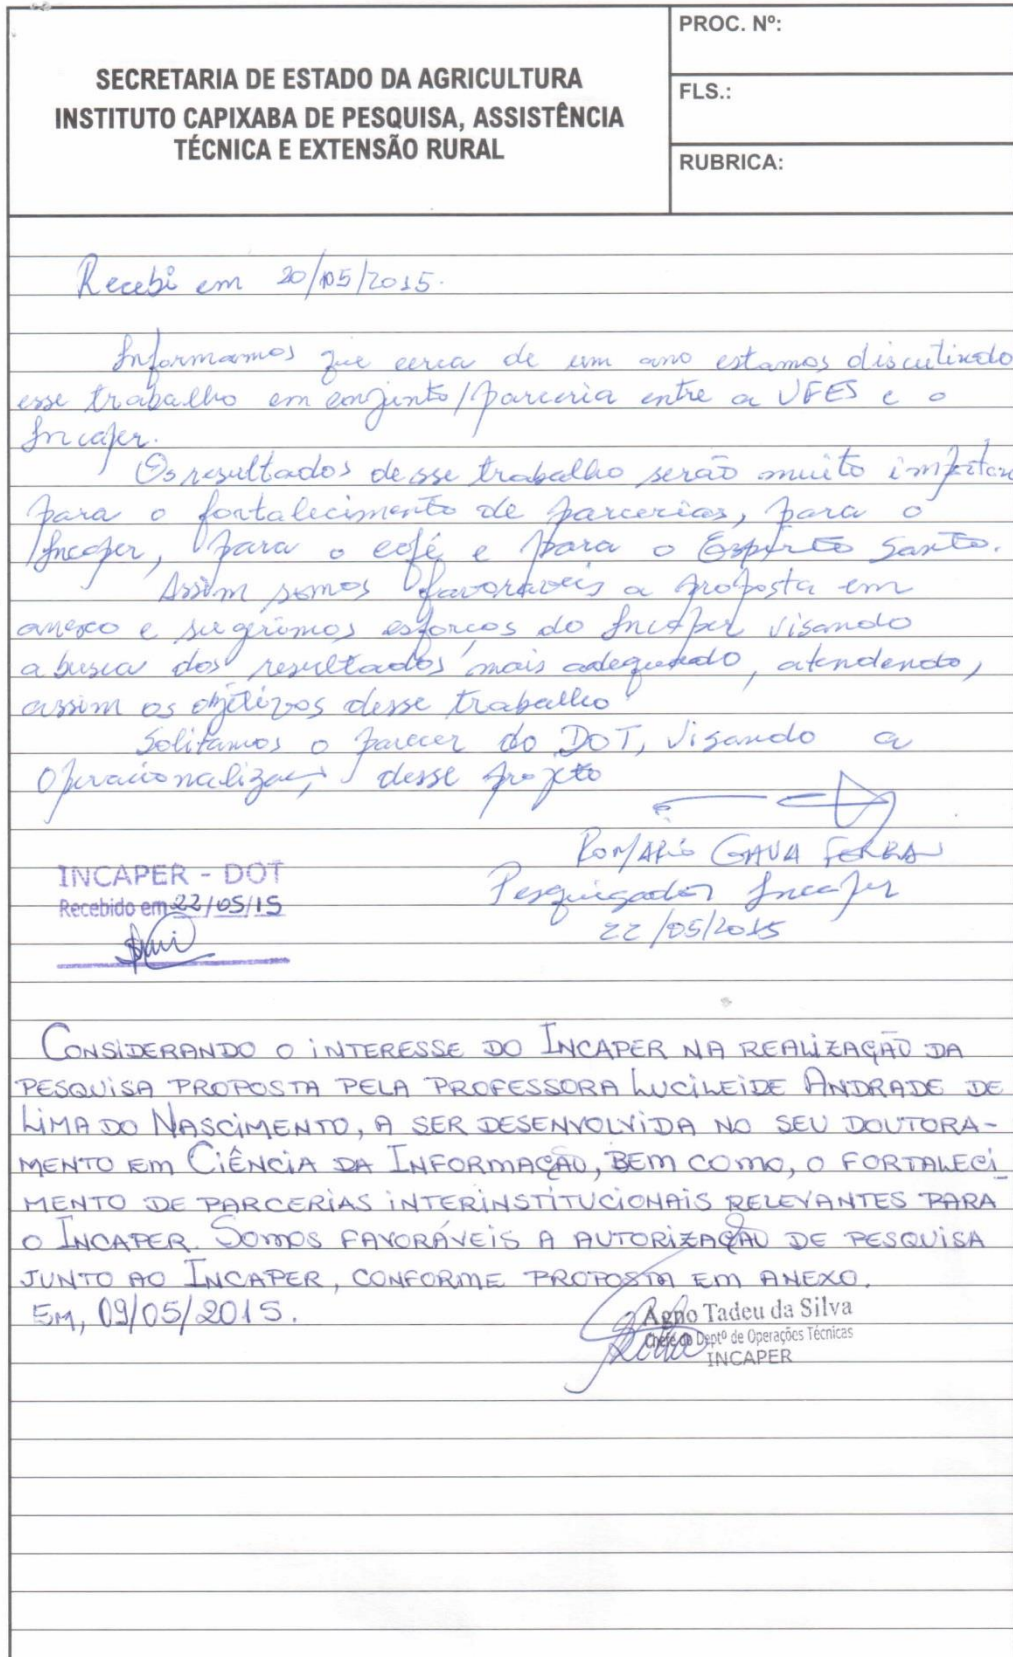 SECRETARIA DE ESTADO DA AGRICULTURA
INSTITUTO CAPIXABA DE PESQUISA, ASSISTÊNCIA
TÉCNICA E EXTENSÃO RURAL
PROC. Nº:
FLS.:
RUBRICA:
Recebi em 20/05/2015.
Informamos que cerca de um ano estamos discutindo
esse trabalho em conjunto/parceria entre a UFES e o
Incaper.
Os resultados desse trabalho serão muito importan
para o fortalecimento de parcerias, para o
Incaper, para o café e para o Espírito Santo.
Assim somos favoráveis a proposta em
anexo e sugerimos esforços do Incaper visando
a busca dos resultados mais adequado, atendendo,
assim os objetivos desse trabalho
Solitamos o parecer do DOT, visando a
Operacionalização desse projeto
Romário Gava Ferrão
Pesquisador Incaper
22/05/2015
INCAPER - DOT
Recebido em 22/05/15
CONSIDERANDO O INTERESSE DO INCAPER NA REALIZAÇÃO DA
PESQUISA PROPOSTA PELA PROFESSORA LUCILEIDE ANDRADE DE
LIMA DO NASCIMENTO, A SER DESENVOLVIDA NO SEU DOUTORA-
MENTO EM CIÊNCIA DA INFORMAÇÃO, BEM COMO, O FORTALECI
MENTO DE PARCERIAS INTERINSTITUCIONAIS RELEVANTES PARA
O INCAPER. SOMOS FAVORÁVEIS A AUTORIZAÇÃO DE PESQUISA
JUNTO AO INCAPER, CONFORME PROPOSTA EM ANEXO.
EM, 09/05/2015.
Agno Tadeu da Silva
Chefe do Deptº de Operações Técnicas
INCAPER